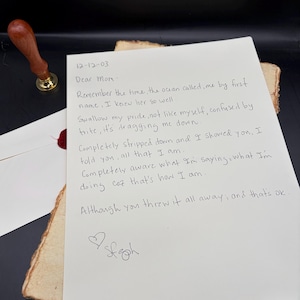 12-12-03
Dear Mom -
Remember the time the ocean called me by first
name, I knew her so well
Swallow my pride not like myself, confused by
fate, it's dragging me down
Completely stripped down and I showed you, I
told you, all that I am
Completely aware what I'm saying, what I'm
doing cuz that's how I am.
Although you threw it all away, and thats ok